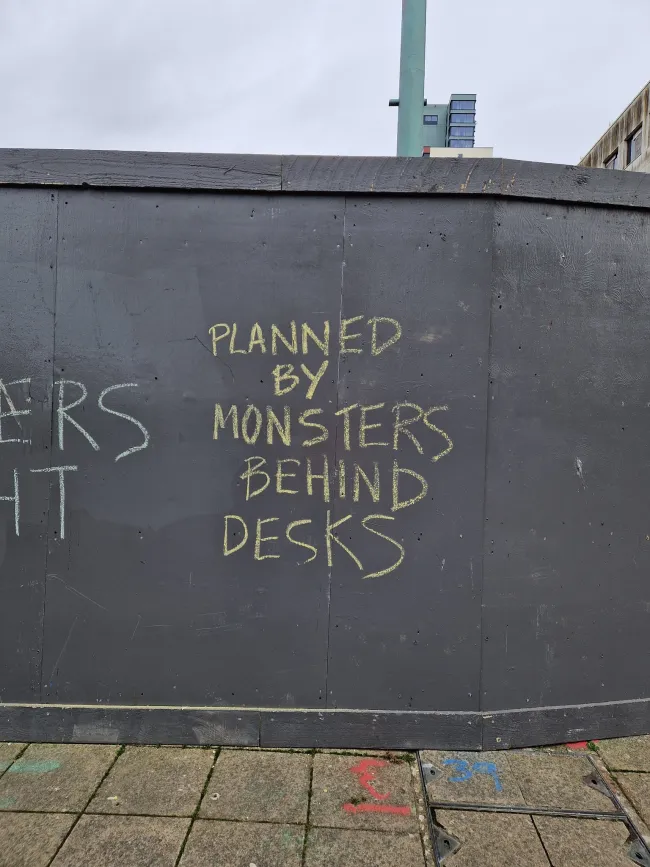 ERS
HT
PLANNED
BY
MONSTERS
BEHIND
DESKS
39